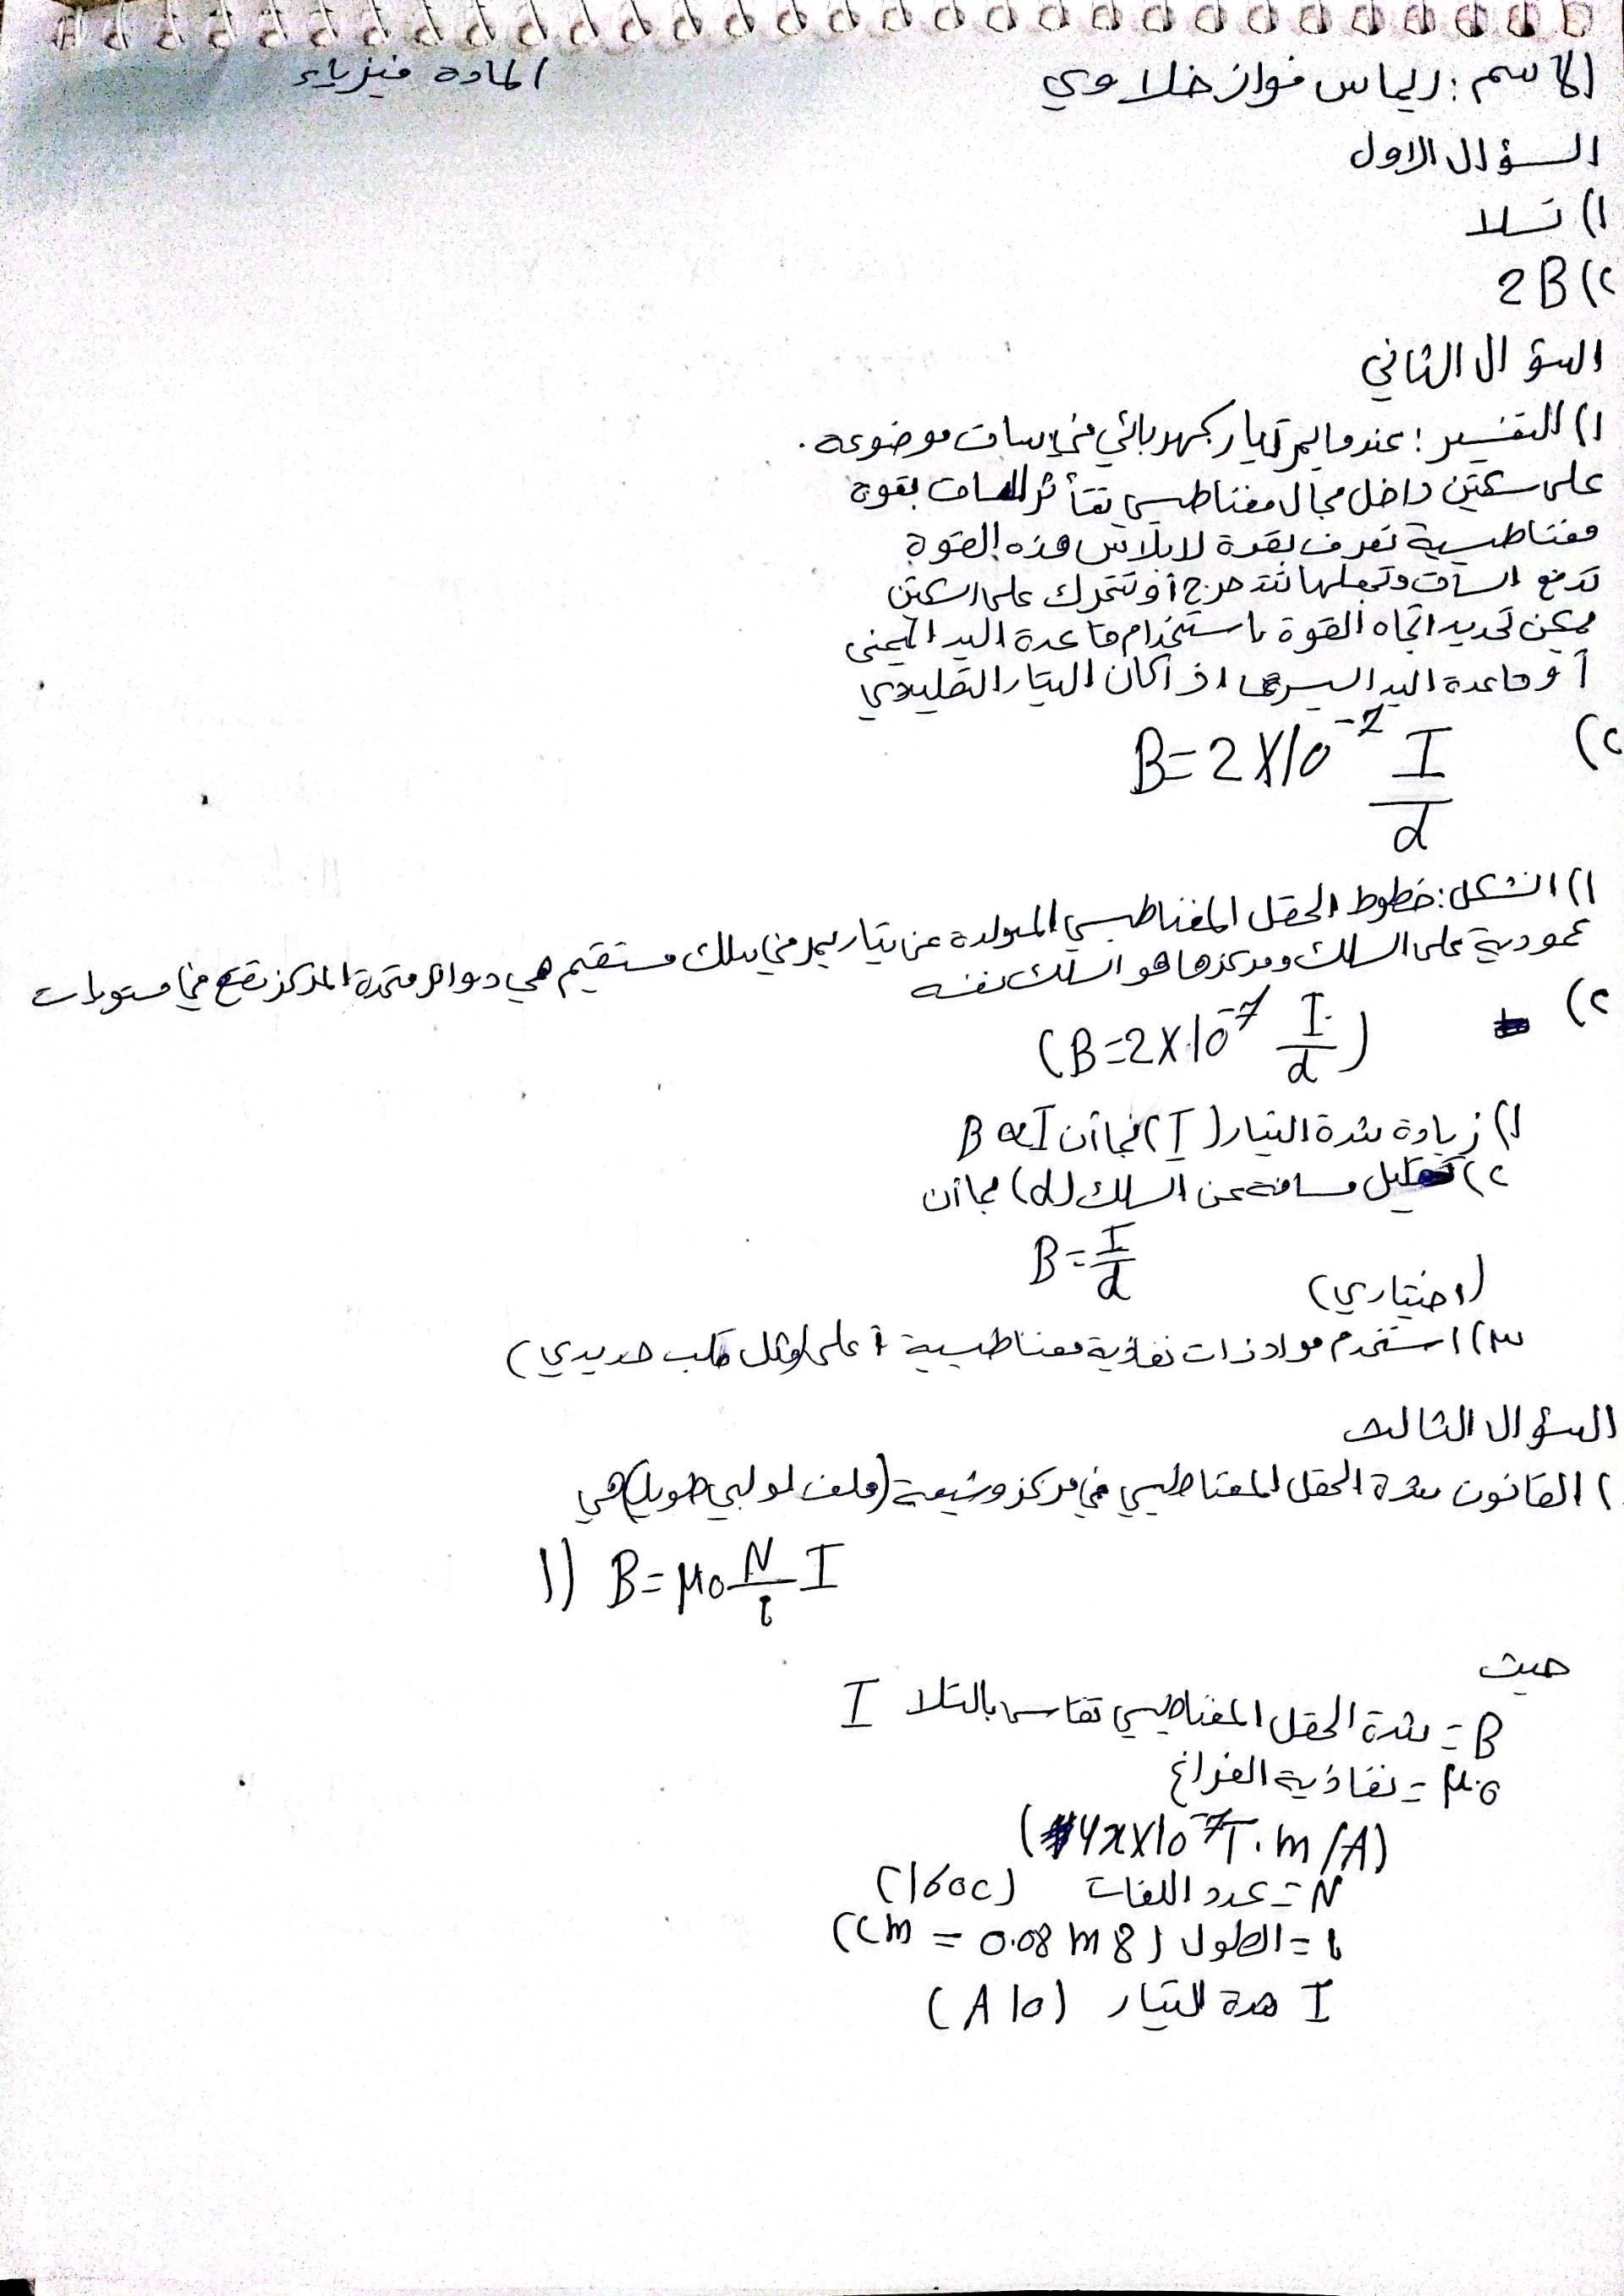 الاسم : ريماس فواز خلاوي
المادة فيزياء
السؤال الاول
١) تسلا
٢) 2B
السؤال الثاني
١) التفسير : عندما يمر تيار كهربائي في ساق موضوعة .
على سكتين داخل مجال مغناطيسي تتأثر الساق بقوة
مغناطيسية تعرف بقوة لابلاس هذه القوة
تدفع الساق وتجعلها تتدحرج أو تتحرك على السكتين
يمكن تحديد اتجاه القوة باستخدام قاعدة اليد اليمنى
أو قاعدة اليد اليسرى اذا كان التيار التقليدي
٢) B=2X10⁻⁷ I/d
١) الشكل : خطوط الحقل المغناطيسي المتولدة عن تيار يمر في سلك مستقيم هي دوائر متحدة المركز تقع في مستويات
عمودية على السلك ومركزها هو السلك نفسه
٢) (B=2X10⁻⁷ I/d)
١) زيادة شدة التيار (I) بما أن B∝I
٢) تقليل مسافة عن السلك (d) بما أن
B=I/d
(اختياري)
٣) استخدم مواد ذات نفاذية مغناطيسية أعلى (مثل قلب حديدي)
السؤال الثالث
١) القانون شدة الحقل المغناطيسي في مركز وشيعة (ملف لولبي طويل) هي
1) B=μ₀ N/l I
حيث
B = شدة الحقل المغناطيسي تقاس بالتسلا I
μ₀ = نفاذية الفراغ
(4πX10⁻⁷T.m/A)
N = عدد اللفات (1600)
l = الطول (8 cm = 0.08 m)
I شدة التيار (10 A)